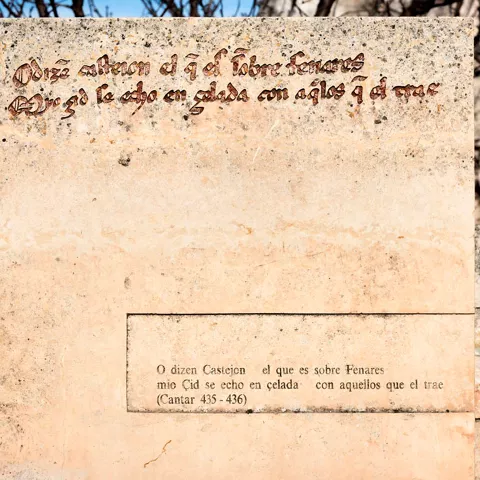 Odizẽ casteion el q̃ es sobre fenares
Myo çid se echo en çelada con aq̃los q̃ el trae
O dizen Castejon el que es sobre Fenares
mio Çid se echo en çelada con aquellos que el trae
(Cantar 435 - 436)